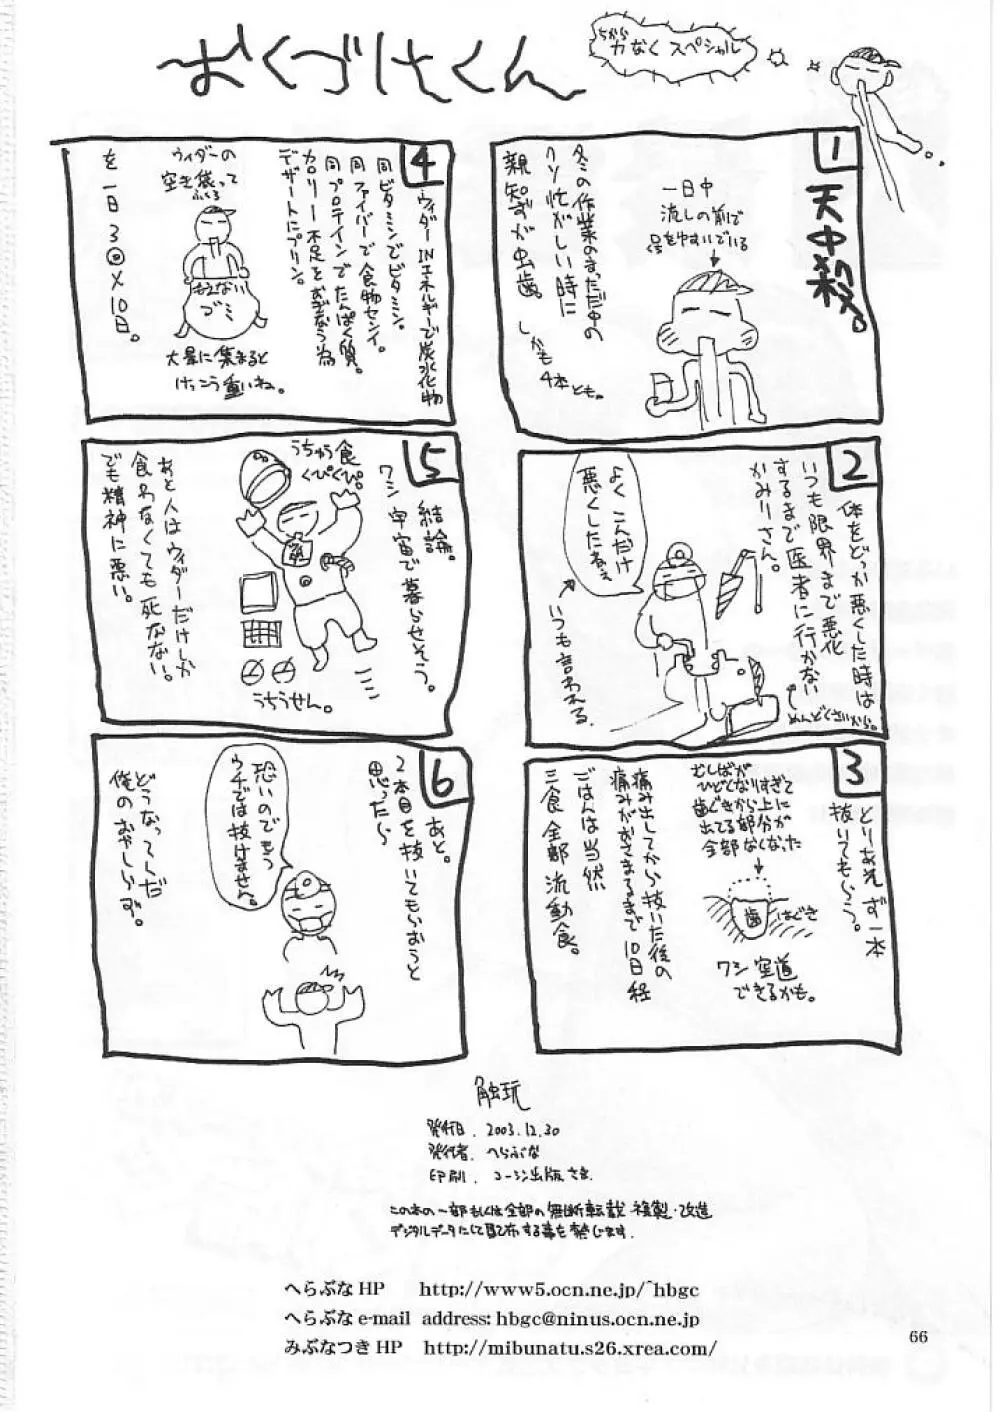 おくづけさくん
力なくスペシャル
ちから
1
天中殺。
冬の作業のまっただ中の
クソ忙がしい時に
親知ずが虫歯。
しかも
4本とも。
一日中
流しの前で
2
体をどっか悪くした時は
いつも限界まで悪化
するまで医者に行かない
かみりさん。
めんどくさいから。
よくこんだけ
悪くしたねぇ
いつも言われる。
3
とりあえず一本
抜いてもらう。
むしばが
ひどくなりすぎて
歯ぐきから上に
出てる部分が
全部なくなった
歯
はぐき
ワシ空道
できるかも。
痛み出してから抜いた後の
痛みがおさまるまで10日程
ごはんは当然
三食全部流動食。
4
ウィダーINエネルギーで炭水化物
同ビタミンでビタミン。
同ファイバーで食物センイ。
同プロテインでたんぱく質。
カロリー不足をおぎなう為
デザートにプリン。
を一日3回×10日。
ウィダーの
空き袋って
ふくろ
もえない
ゴミ
大量に集まると
けっこう重いね。
5
結論。
ワシ宇宙で暮らせそう。
うちゅう食
くぴくぴ。
うちうせん。
ここ
あと人はウィダーだけしか
食わなくても死なない。
でも精神に悪い。
6
あと。
2本目を抜いてもらおうと
思ったら
恐いのでもう
ウチでは抜けません。
どうなってんだ
俺のおやしらず。
触玩
発行日. 2003.12.30
発行者. へらぶな
印刷. コーシン出版さま
この本の一部もしくは全部の無断転載・複製・改造
デジタルデータにして配布する事を禁じます.
へらぶなHP http://www5.ocn.ne.jp/~hbgc
へらぶな e-mail address: hbgc@ninus.ocn.ne.jp
みぶなつきHP http://mibunatu.s26.xrea.com/
66